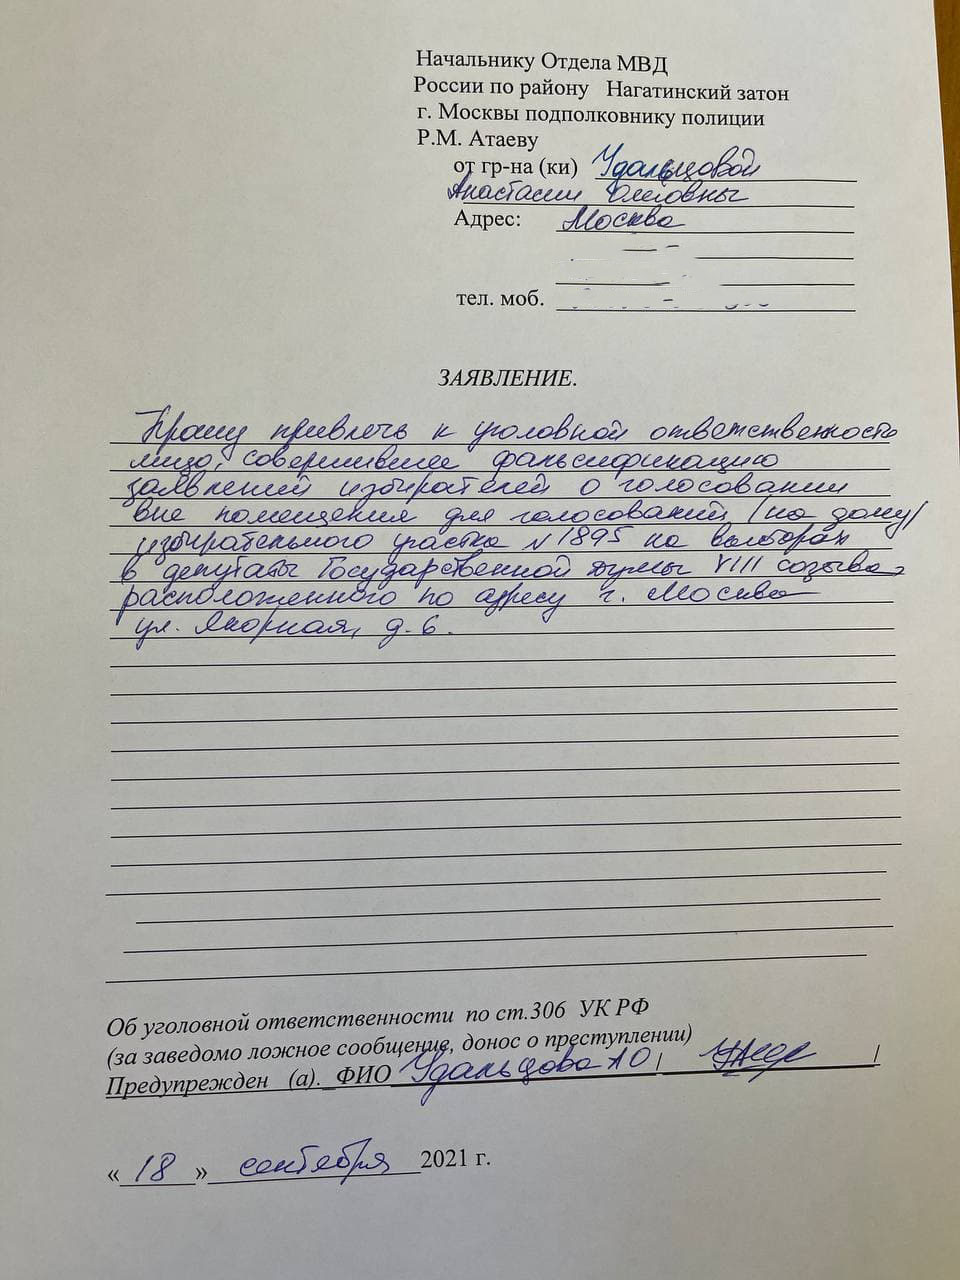 Начальнику Отдела МВД
России по району Нагатинский затон
г. Москвы подполковнику полиции
Р.М. Атаеву
от гр-на (ки) Удальцовой
Анастасии Олеговны
Адрес: Москва
тел. моб.
ЗАЯВЛЕНИЕ.
Прошу привлечь к уголовной ответственности
лицо, совершившее фальсификацию
заявлений избирателей о голосовании
вне помещения для голосований /на дому/
избирательного участка №1895 на выборах
в депутаты Государственной думы VIII созыва,
расположенного по адресу г. Москва
ул. Якорная, д. 6.
Об уголовной ответственности по ст.306 УК РФ
(за заведомо ложное сообщение, донос о преступлении)
Предупрежден (а). ФИО Удальцова АО / /
« 18 » сентября 2021 г.